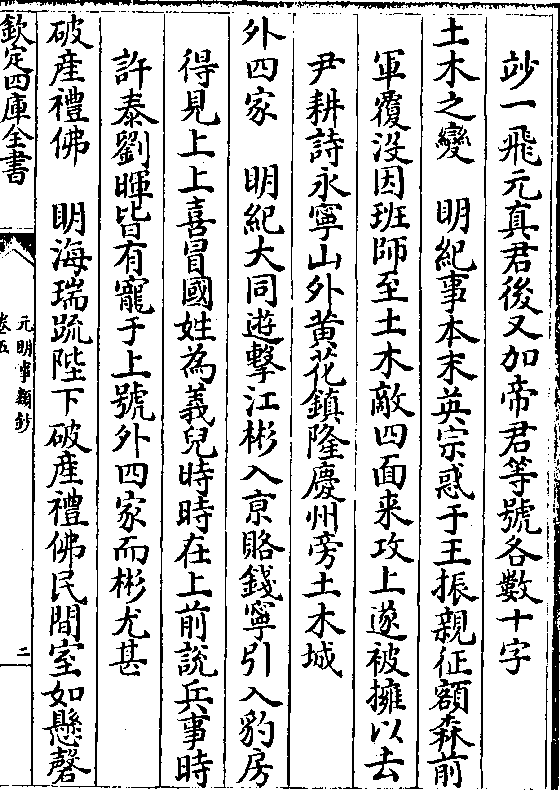 竗一飛元真君後又加帝君等號各數十字
土木之變　明紀事本末英宗惑于王振親征額森前
軍覆没因班師至土木敵四面来攻上遂被擁以去
尹耕詩永寧山外黄花鎮隆慶州旁土木城
外四家　明紀大同遊擊江彬入京賂錢寧引入豹房
得見上上喜冒國姓為義兒時時在上前説兵事時
許泰劉暉皆有寵于上號外四家而彬尤甚
破産禮佛　明海瑞疏陛下破産禮佛民間室如懸磬
欽定四庫全書
元明事類鈔
卷五
二